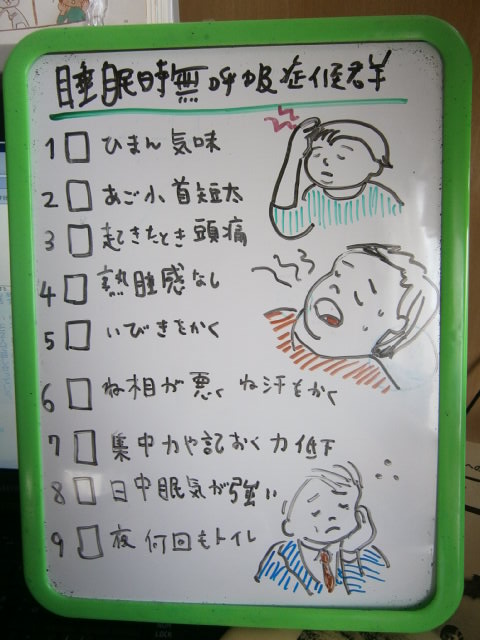 睡眠時無呼吸症候群
1 ひまん気味
2 あご小首短太
3 起きたとき頭痛
4 熟睡感なし
5 いびきをかく
6 ね相が悪くね汗もかく
7 集中力や記おく力低下
8 日中眠気が強い
9 夜何回もトイレ